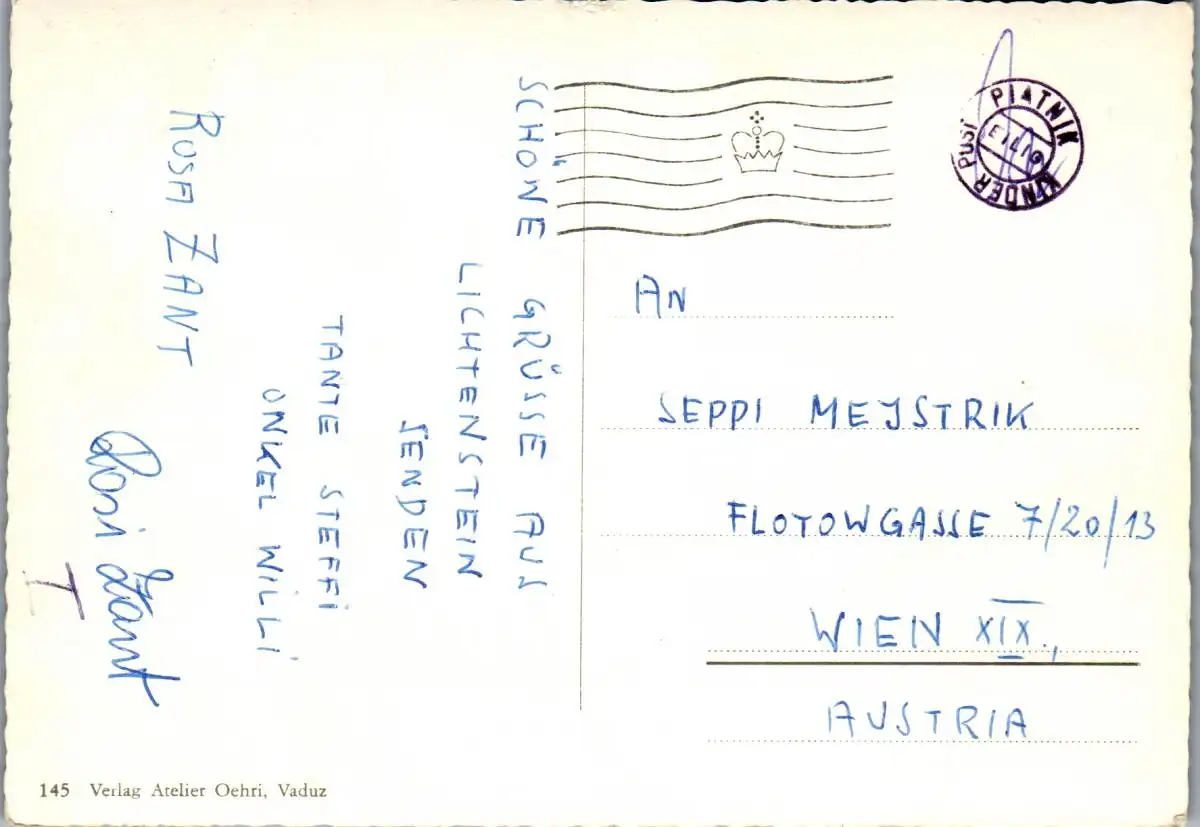 SCHÖNE GRÜSSE AUS
LICHTENSTEIN
SENDEN
TANTE STEFFI
ONKEL WILLI
ROSA ZANT
Rosi Zant
PIATNIK
KINDER POST
AN
SEPPI MEJSTRIK
FLOTOWGASSE 7/20/13
WIEN XIX.,
AUSTRIA
145 Verlag Atelier Oehri, Vaduz